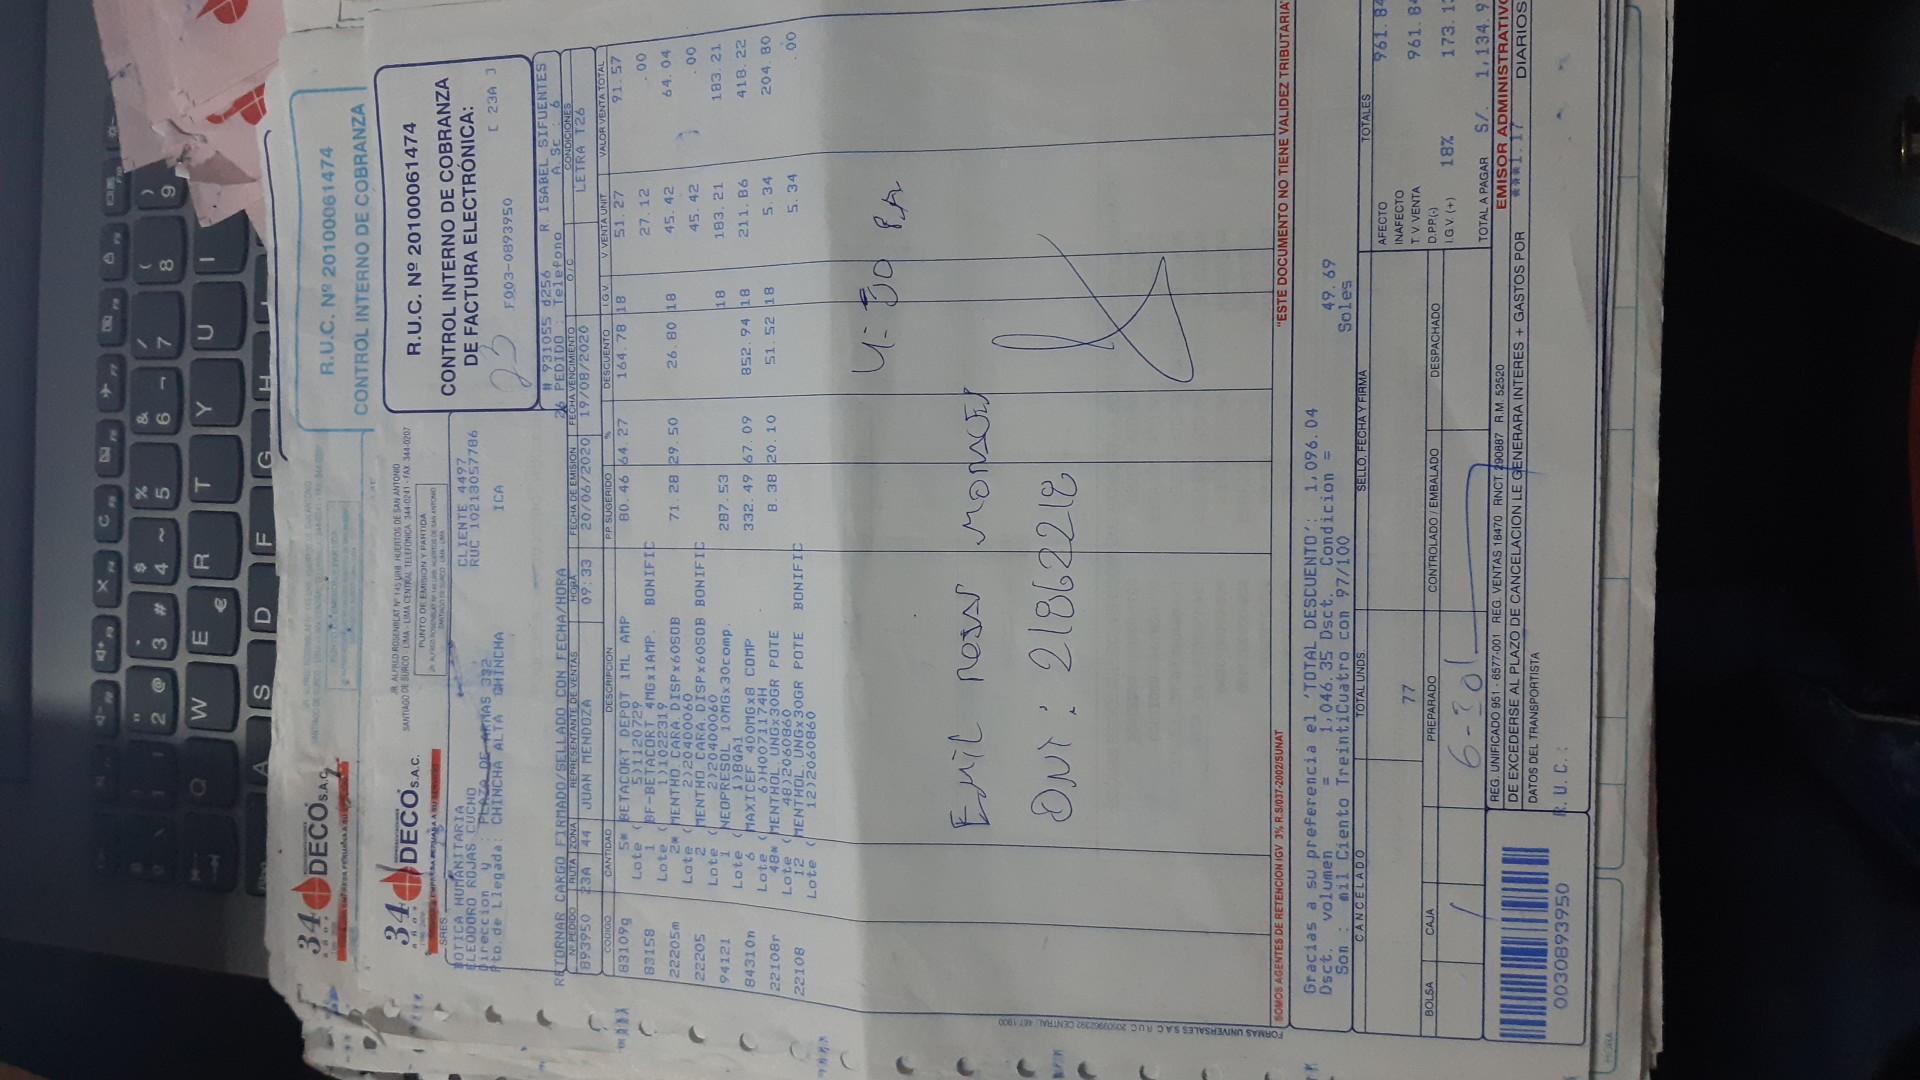 R.U.C. Nº 20100061474
CONTROL INTERNO DE COBRANZA
34 DECO S.A.C.
años
EMPRESA PERUANA A SU SERVICIO
JR. ALFRED ROSENBLAT Nº 145 URB. HUERTOS DE SAN ANTONIO
SANTIAGO DE SURCO - LIMA - LIMA CENTRAL TELEFONICA. 344-0241 - FAX. 344-0207
PUNTO DE EMISION Y PARTIDA
JR. ALFRED ROSENBLAT Nº 145 URB. HUERTOS DE SAN ANTONIO
SANTIAGO DE SURCO - LIMA - LIMA
R.U.C. Nº 20100061474
CONTROL INTERNO DE COBRANZA
DE FACTURA ELECTRÓNICA:
23 F003-0893950 [ 23A ]
SRES.
BOTICA HUMANITARIA CLIENTE 4497
ELEODORO ROJAS CUCHO RUC 10213057786
Direccion y : PLAZA DE ARMAS 332
Pto.de Llegada: CHINCHA ALTA CHINCHA ICA
# 931055 d256 R. ISABEL SIFUENTES
26 PEDIDO : Telefono A.Sc : 6
RETORNAR CARGO FIRMADO/SELLADO CON FECHA/HORA
Nº PEDIDO RUTA ZONA REPRESENTANTE DE VENTAS HORA FECHA DE EMISION FECHA VENCIMIENTO O/C CONDICIONES
893950 23A 44 JUAN MENDOZA 09:33 20/06/2020 19/08/2020 LETRA T26
CODIGO CANTIDAD DESCRIPCION P.P. SUGERIDO % DESCUENTO I.G.V. V.VENTA UNIT VALOR VENTA TOTAL
83109g 5* BETACORT DEPOT 1ML AMP 80.46 64.27 164.78 18 51.27 91.57
Lote ( 5)112729
83158 1 BF-BETACORT 4MGx1AMP. BONIFIC 27.12 .00
Lote ( 1)1022319
22205m 2* MENTHO.CARA.DISPx60SOB 71.28 29.50 26.80 18 45.42 64.04
Lote ( 2)20400060
22205 2 MENTHO.CARA.DISPx60SOB BONIFIC 45.42 .00
Lote ( 2)20400060
94121 1 NEOPRESOL 10MGx30comp. 287.53 18 183.21 183.21
Lote ( 1)BQA1
84310n 6 MAXICEF 400MGx8 COMP 332.49 67.09 852.94 18 211.86 418.22
Lote ( 6)H0071174H
22108r 48* MENTHOL.UNGx30GR POTE 8.38 20.10 51.52 18 5.34 204.80
Lote ( 48)2060860
22108 12 MENTHOL.UNGx30GR POTE BONIFIC 5.34 .00
Lote ( 12)2060860
4:30
DNI: 21862218
FORMAS UNIVERSALES S.A.C.
SOMOS AGENTES DE RETENCION IGV 3% R.S/037-2002/SUNAT
"ESTE DOCUMENTO NO TIENE VALIDEZ TRIBUTARIA"
Gracias a su preferencia el 'TOTAL DESCUENTO': 1,096.04
Dsct. volumen = 1,046.35 Dsct. Condicion = 49.69
Son : mil Ciento TreintiCuatro con 97/100 Soles
CANCELADO TOTAL UNDS. SELLO, FECHA Y FIRMA TOTALES
77
AFECTO 961.84
INAFECTO
T.V. VENTA 961.84
D.P.P.(-)
I.G.V.(+) 18%
TOTAL A PAGAR S/.
BOLSA CAJA PREPARADO CONTROLADO / EMBALADO DESPACHADO
1 6-301
REG. UNIFICADO 951 - 8577-001 REG. VENTAS 18470 RNCT. 290887 R.M. 52520
DE EXCEDERSE AL PLAZO DE CANCELACION LE GENERARA INTERES + GASTOS POR
EMISOR ADMINISTRATIVO
***1.17
DIARIOS
DATOS DEL TRANSPORTISTA
R.U.C.:
0030893950